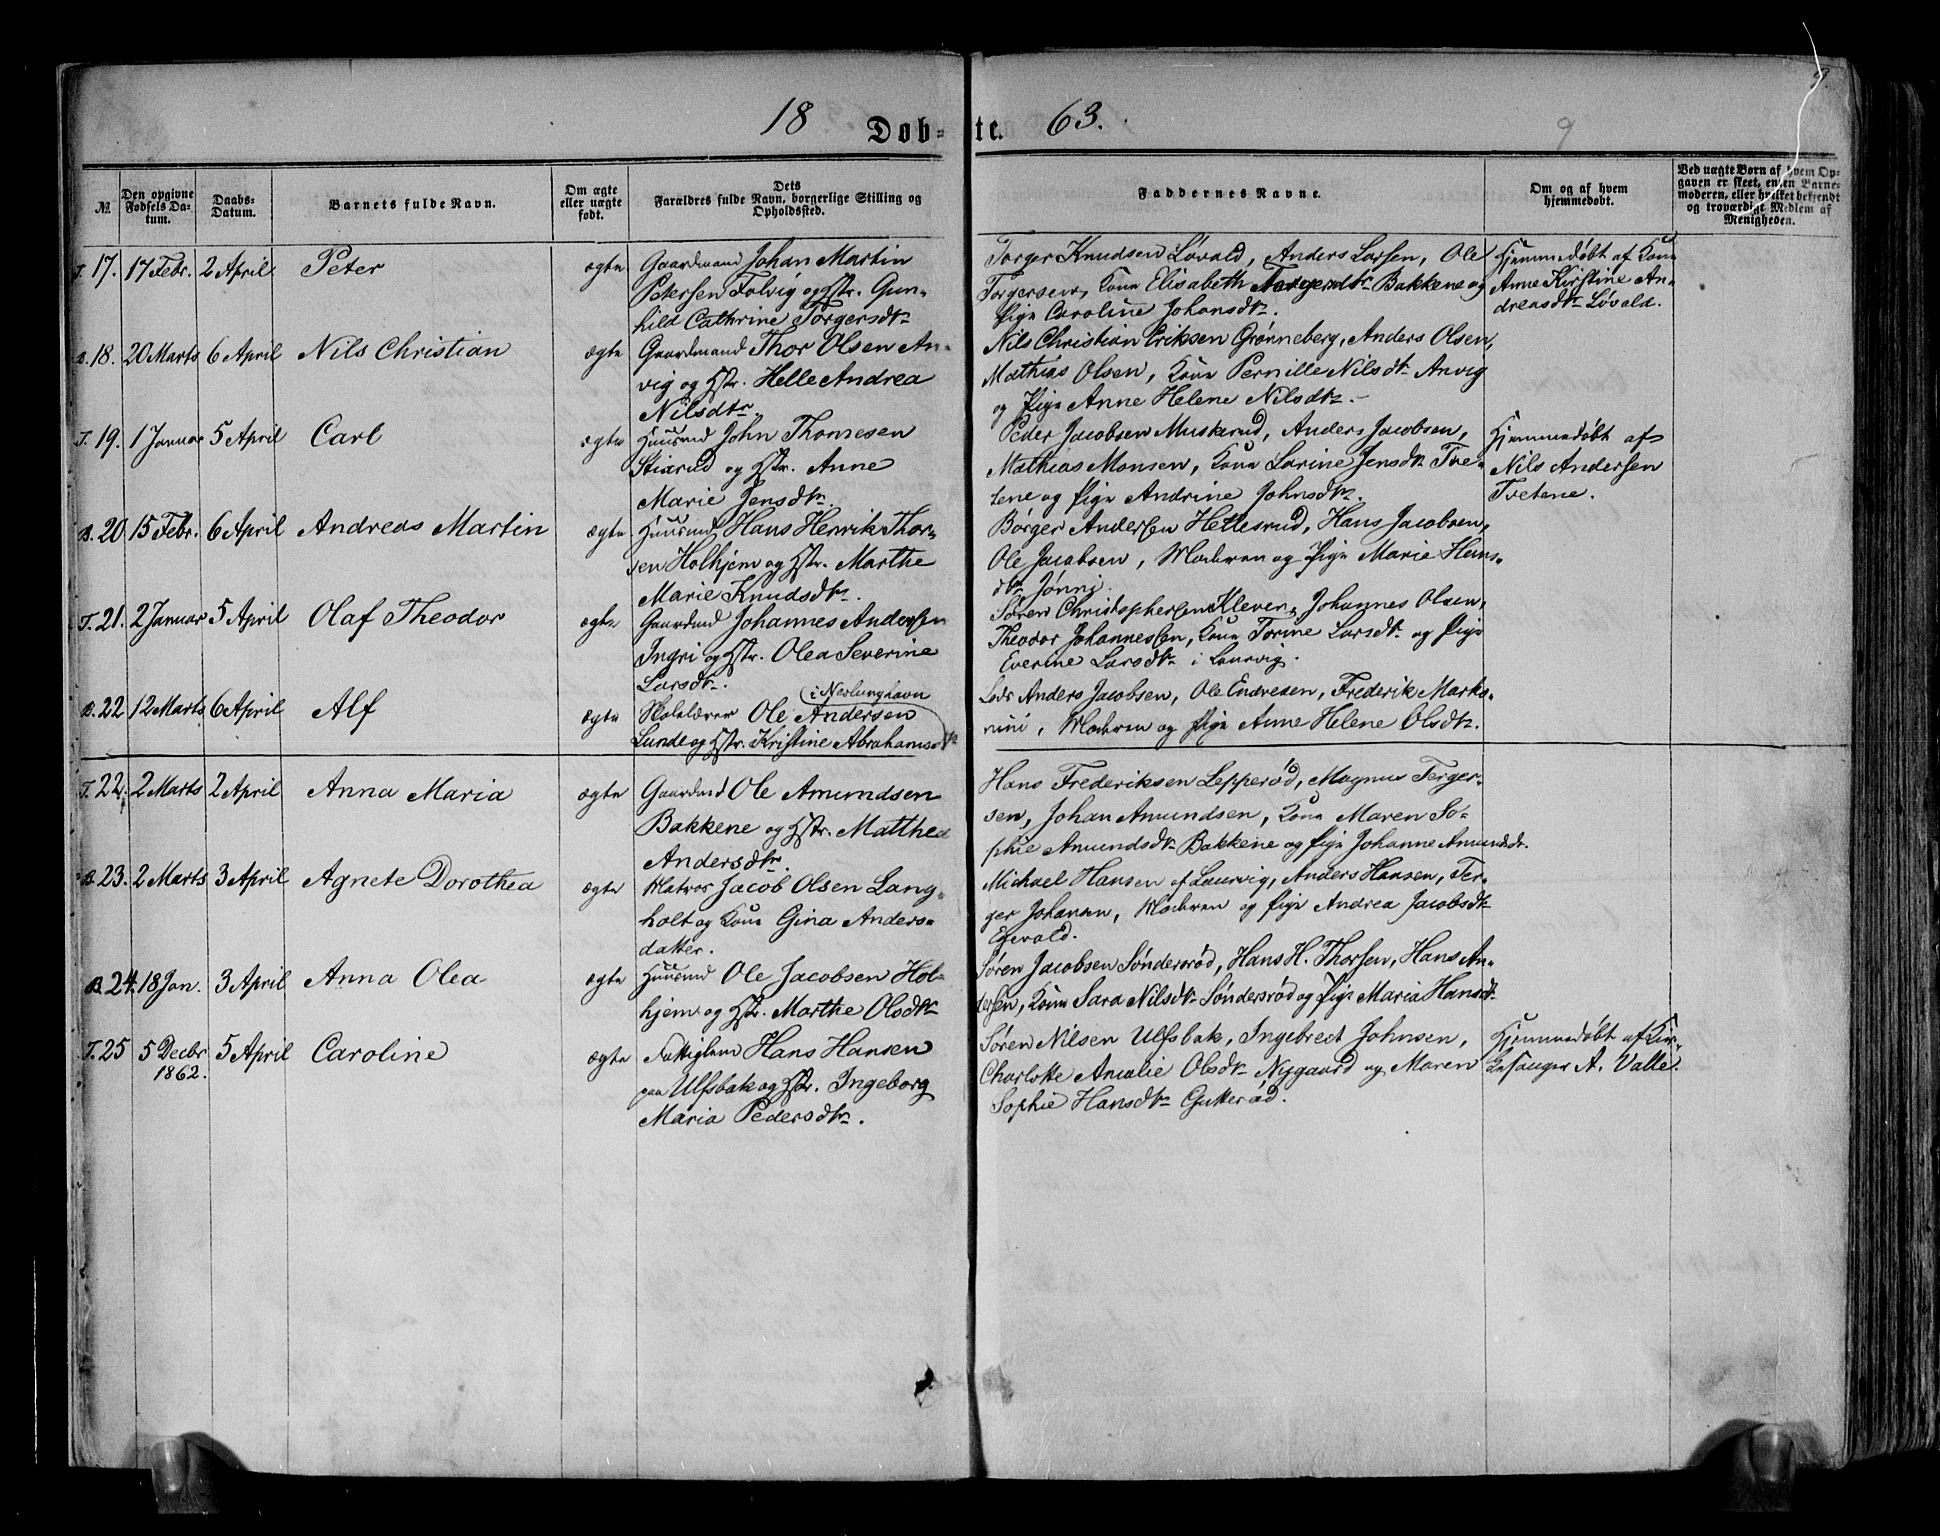 18 63.
Døb- te.
9
№
Den opgivne Fødsels Datum.
Daabs-Datum.
Barnets fulde Navn.
Om ægte eller uægte født.
Dets Forældres fulde Navn, borgerlige Stilling og Opholdssted.
Faddernes Navne.
Om og af hvem hjemmedøbt.
Ved uægte Børn af hvem Opgaven er skeet, enten Barnemoderen, eller hvilket bekjendt og troværdigt Medlem af Menigheden.
T. 17. 17 Febr. 2 April Peter ægte
Gaardmand Johan Martin
Petersen Folvig og Hstr. Gun-
hild Cathrine Torgersdtr
Torger Knudsen Løvald, Anders Larsen, Ole
Torgersen, Kone Elisabeth Bakkene og
Pige Caroline Johansdtr.
Hjemmedøbt af Kone
Anne Kirstine An-
dreasdtr Løvald.
B. 18. 20 Marts 6 April Nils Christian ægte
Gaardmand Thor Olsen An-
vig og Hstr. Helle Andrea
Nilsdtr.
Nils Christian Eriksen Grønneberg, Anders Olsen,
Mathias Olsen, Kone Pernille Nilsdtr Anvig
og Pige Anne Helene Nilsdtr.
T. 19. 1 Januar 5 April Carl ægte
Huusmd John Thomesen
Stixrud og Hstr. Anne
Marie Jensdtr.
Peder Jacobsen Muskerud, Anders Jacobsen,
Mathias Monsen, Kone Larine Jensdtr Tve-
tene og Pige Andrine Johnsdtr.
Hjemmedøbt af
Nils Andersen
Tvetene.
B. 20 15 Febr. 6 April Andreas Martin ægte
Huusmd Hans Henrik Thor-
sen Holhjem og Hstr. Marthe
Marie Knudsdtr.
Børger Andersen Hellesrud, Hans Jacobsen,
Ole Jacobsen, Moderen og Pige Marie Hans-
dtr Jønni.
T. 21. 2 Januar 5 April Olaf Theodor ægte
Gaardmd Johannes Andersen
Ingri og Hstr. Olea Severine
Larsdtr.
Søren Christophersen Klever, Johannes Olsen,
Theodor Johannessen, Kone Torine Larsdtr og Pige
Everine Larsdtr i Laurvig.
B. 22 12 Marts 6 April Alf ægte
i Nevlunghavn
Skolelærer Ole Andersen
Lunde og Hstr. Kristine Abrahamsdtr
Lods Anders Jacobsen, Ole Enevesen, Frederik Marks-
nini, Moderen og Pige Anne Helene Olsdtr.
T. 22. 2 Marts 2 April Anna Maria ægte
Gaardmd Ole Amundsen
Bakkene og Hstr. Matthea
Andersdtr.
Hans Frederiksen Lepperød, Magnus Terger-
sen, Johan Amundsen, Kone Maren So-
phie Amundsdtr Bakkene og Pige Johanne Amundsdtr.
B. 23. 2 Marts 3 April Agnete Dorothea ægte
Matros Jacob Olsen Lang-
holt og Kone Gina Anders-
datter.
Michael Hansen af Laurvig, Anders Hansen, Ter-
ger Johansen, Moderen og Pige Andrea Jacobsdtr
Egevald.
B. 24. 18 Jan. 3 April Anna Olea ægte
Huusmd Ole Jacobsen Hol-
hjem og Hstr. Marthe Olsdtr
Søren Jacobsen Søndersrød, Hans H. Thorsen, Hans An-
dersen, Kone Sara Nilsdtr Søndersrød og Pige Maria Hansdtr
T. 25 5 Decbr 1862. 5 April Caroline ægte
Fattiglem Hans Hansen
paa Ulfsbak og Hstr. Ingeborg
Maria Pedersdtr.
Søren Nilsen Ulfsbak, Ingebrect Johnsen,
Charlotte Amalie Olsdtr Nygaard og Maren
Sophie Hansdtr Gutterød.
Hjemmedøbt af Kir-
kesanger A. Valle.